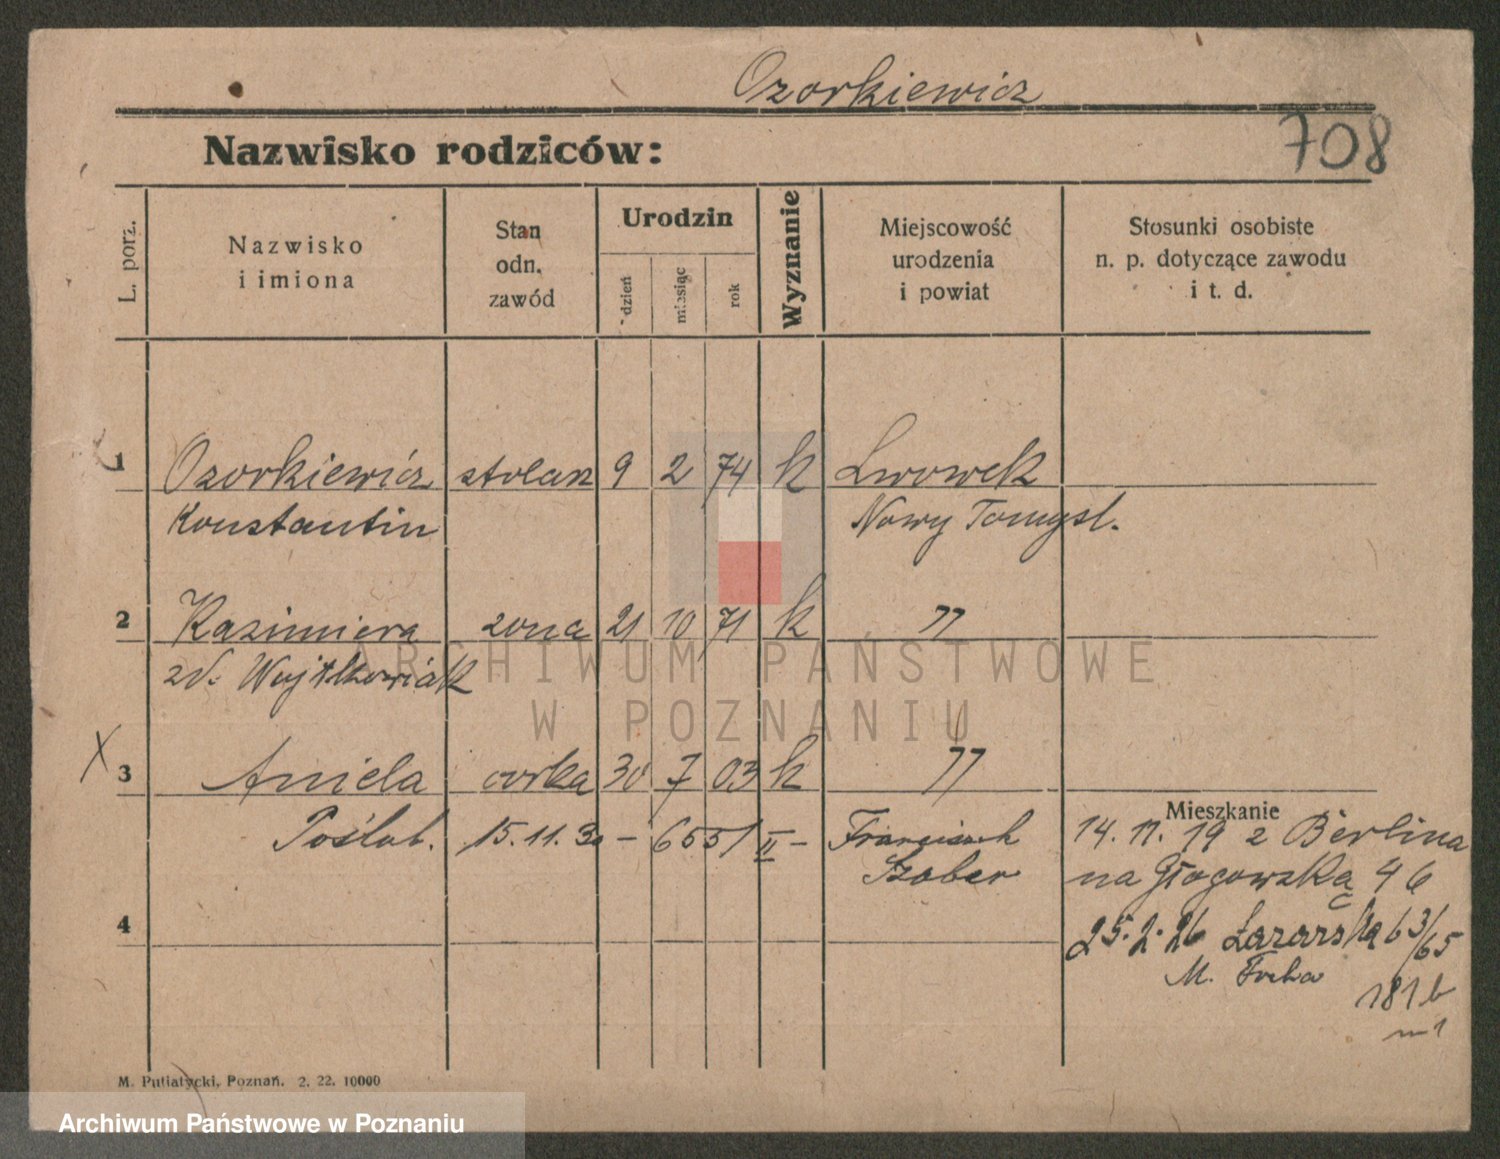 Ozorkiewicz
708
Nazwisko rodziców:
L. porz.
Nazwisko
i imiona
Stan
odn.
zawód
Urodzin
dzień
miesiąc
rok
Wyznanie
Miejscowość
urodzenia
i powiat
Stosunki osobiste
n. p. dotyczące zawodu
i t. d.
1 Ozorkiewicz stolarz 9 2 74 k Lwowek
Konstantin Nowy Tomysl.
2 Kazimiera zona 21 10 71 k "
zd. Wojtkowiak
X 3 Aniela corka 30 7 03 k "
Mieszkanie
Poślub. 15.11.30 – 655/II – Franciszek 14. 11. 19 z Berlina
Szober na Głogowską 46
4
25.2.26 Łazarska 63/65
M.
181 b
m 1
M. Putiatycki, Poznań. 2. 22. 10000
ARCHIWUM PAŃSTWOWE
W POZNANIU
Archiwum Państwowe w Poznaniu